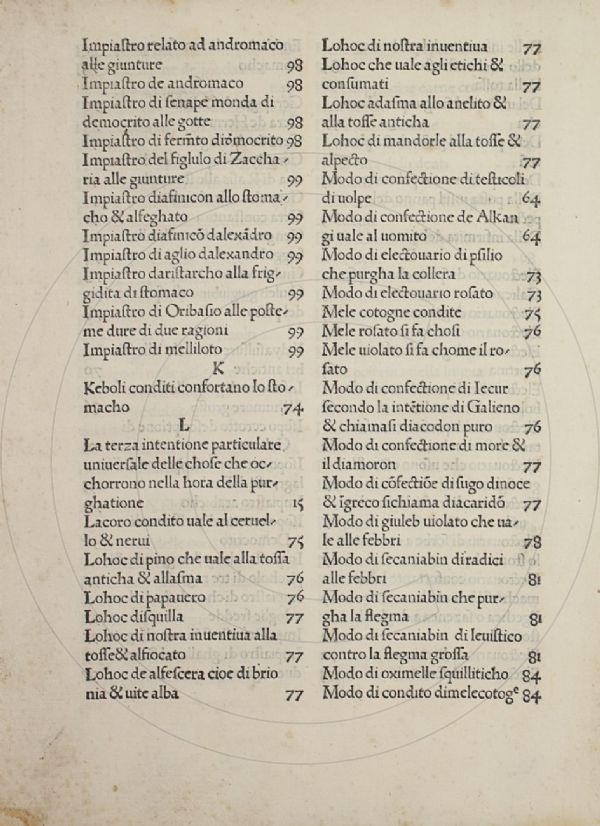 Impiaſtro relato ad andromaco
alle giunture 98
Impiaſtro de andromaco 98
Impiaſtro di ſenape monda di
democrito alle gotte 98
Impiaſtro di fermẽto diomocrito 98
Impiaſtro del figlulo di Zaccha⸗
ria alle giunture 99
Impiaſtro diafinicon allo ſtoma⸗
cho & alfeghato 99
Impiaſtro diafinicõ dalexãdro 99
Impiaſtro di aglio dalexandro 99
Impiaſtro dariſtarcho alla frig⸗
gidita di ſtomaco 99
Impiaſtro di Oribaſio alle poſte⸗
me dure di due ragioni 99
Impiaſtro di melliloto 99
K
Keboli conditi confortano lo ſto⸗
macho 74
L
La terza intentione particulare
uniuerſale delle choſe che oc⸗
chorrono nella hora della pur⸗
ghatione 15
Lacoro condito uale al ceruel⸗
lo & nerui 75
Lohoc di pino che uale alla toſſa
anticha & allaſma 76
Lohoc di papauero 76
Lohoc diſquilla 77
Lohoc di noſtra inuentiua alla
toſſe & alfiocato 77
Lohoc de alfeſcera cioe di brio
nia & uite alba 77
Lohoc di noſtra inuentiua 77
Lohoc che uale agli etichi &
conſumati 77
Lohoc adaſma allo anelito &
alla toſſe anticha 77
Lohoc di mandorle alla toſſe &
alpecto 77
Modo di confectione di teſticoli
di uolpe 64
Modo di confectione de Alkan
gi uale al uomito 64
Modo di electouario di pſilio
che purgha la collera 73
Modo di electouario roſato 73
Mele cotogne condite 75
Mele roſato ſi fa choſi 76
Mele uiolato ſi fa chome il ro⸗
ſato 76
Modo di confectione di Iecur
ſecondo la intẽtione di Galieno
& chiamaſi diacodon puro 76
Modo di confectione di more &
il diamoron 77
Modo di cõfectiõe di ſugo dinoce
& ĩgreco ſichiama diacaridõ 77
Modo di giuleb uiolato che ua⸗
le alle febbri 78
Modo di ſecaniabin diradici
alle febbri 81
Modo di ſecaniabin che pur⸗
gha la flegma 81
Modo di ſecaniabin di leuiſtico
contro la flegma groſſa 81
Modo di oximelle ſquilliticho 84
Modo di condito dimelecotogᵉ 84